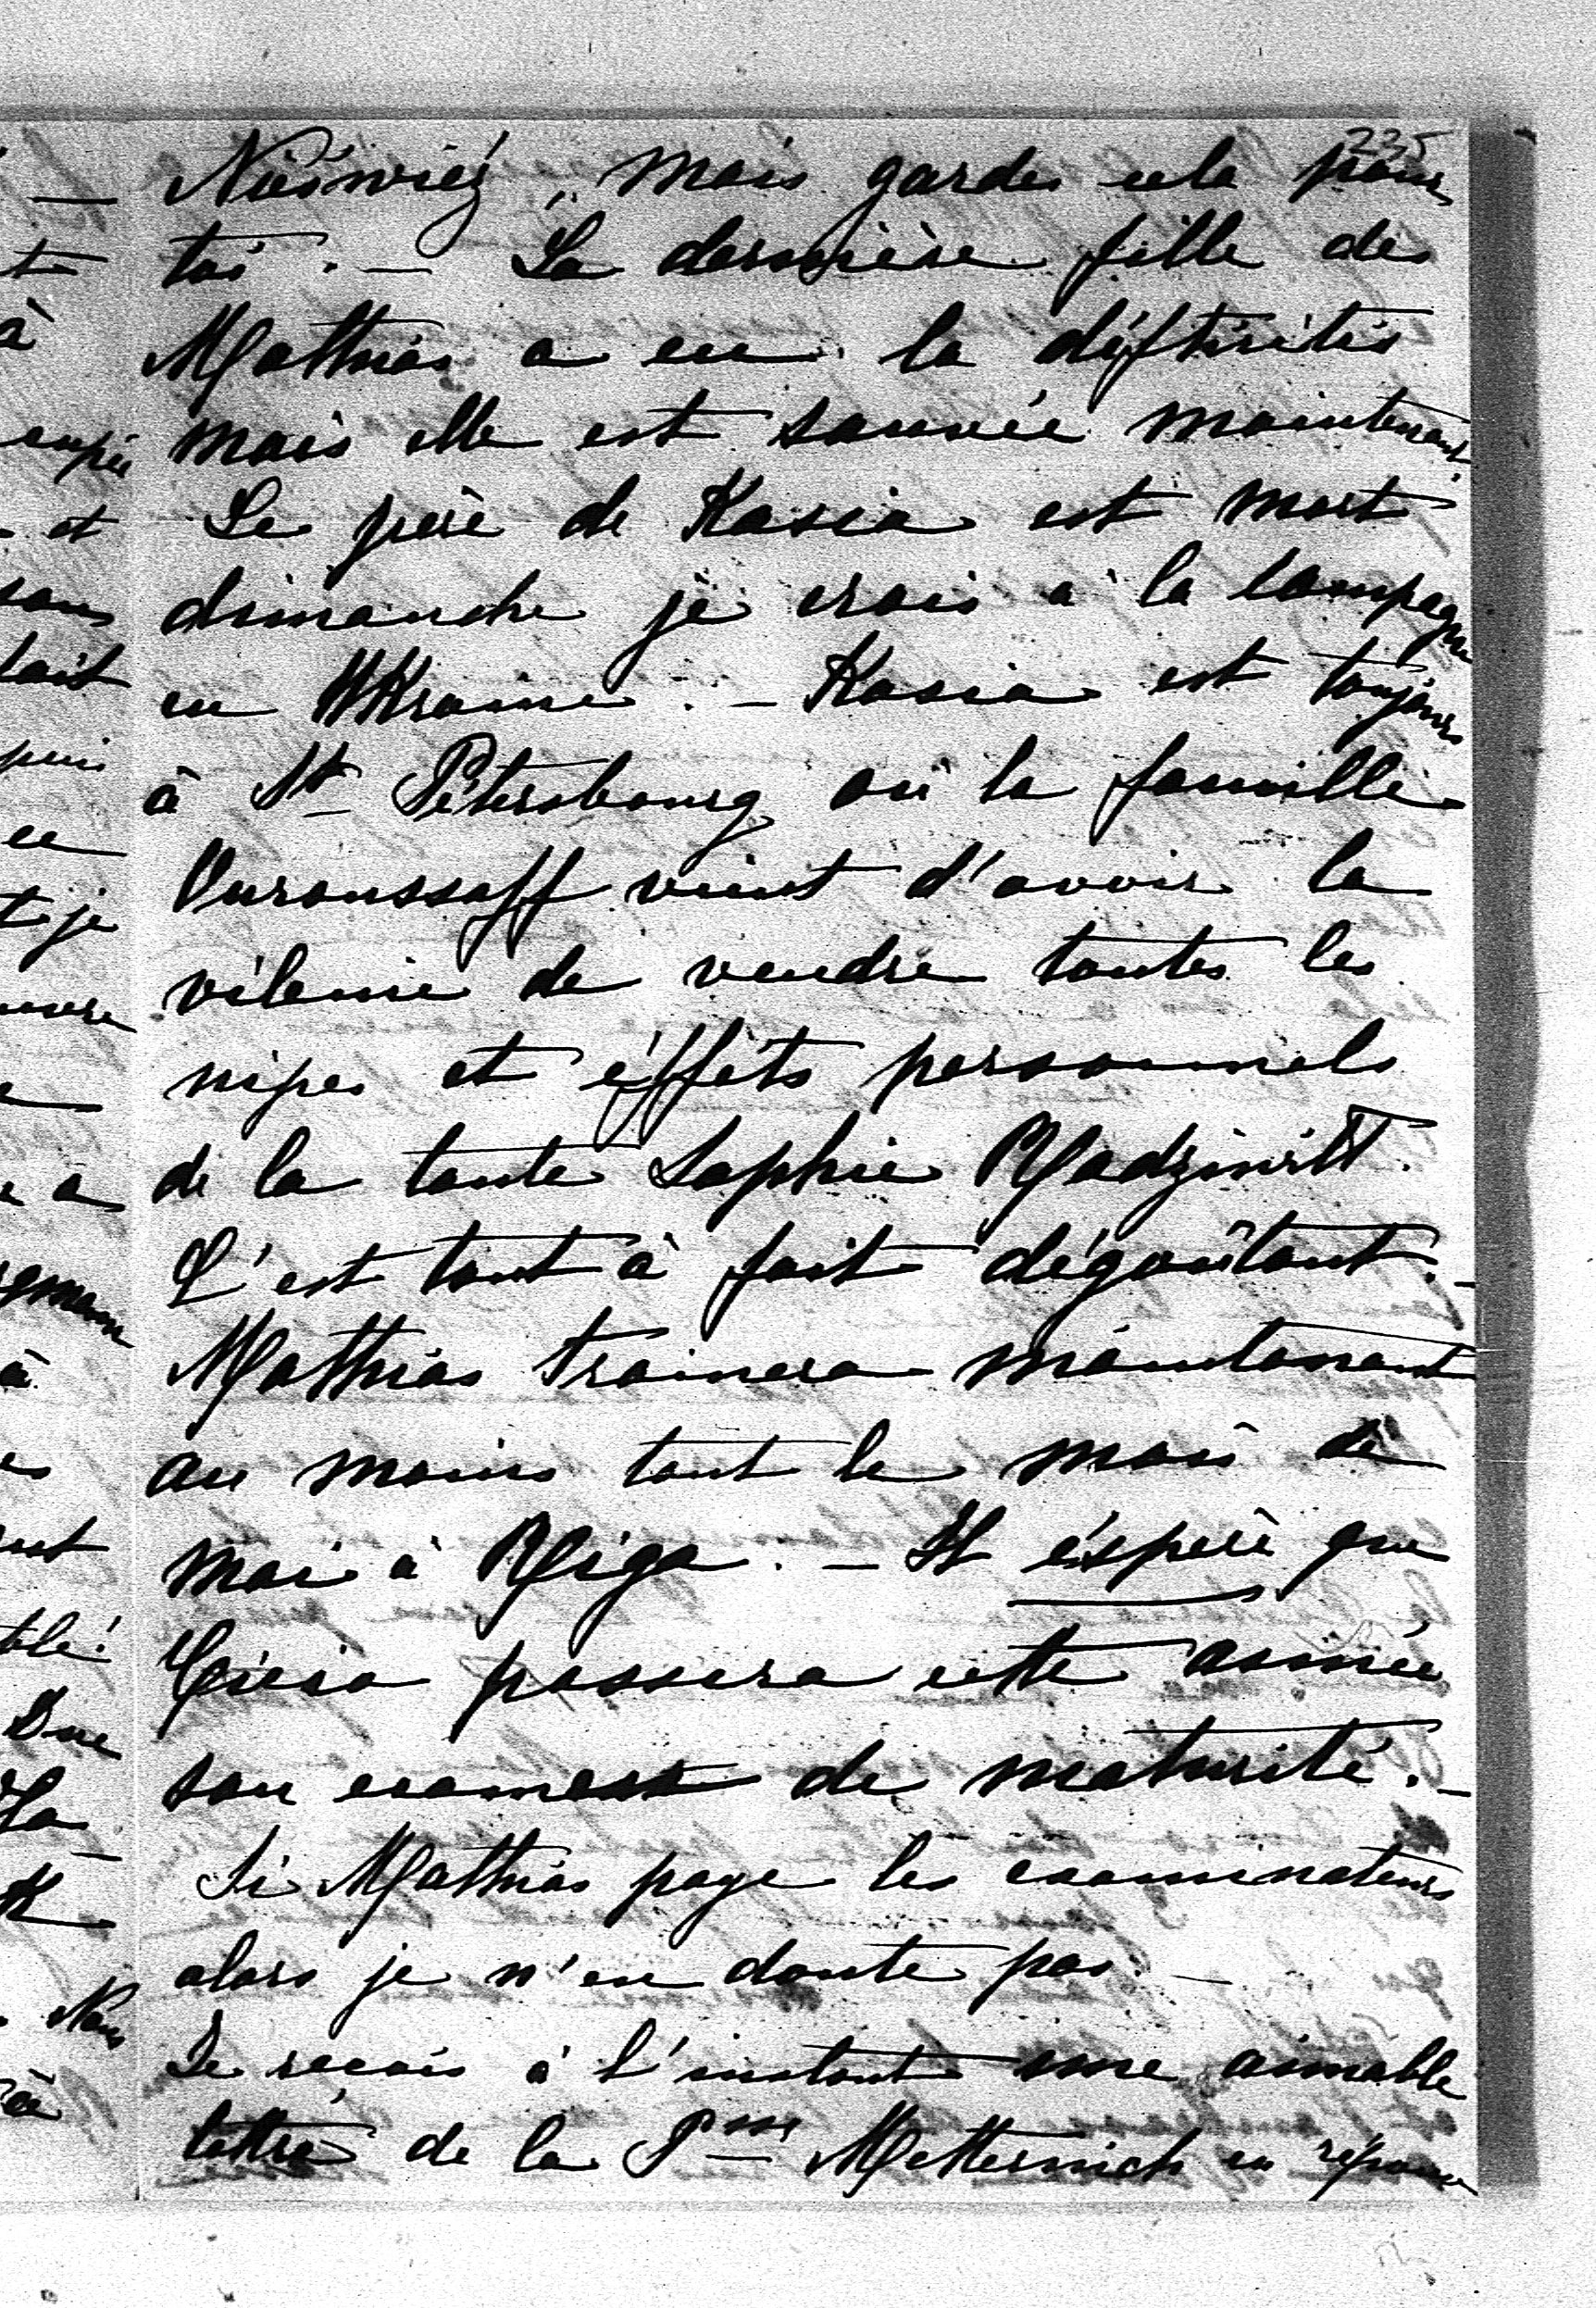 235
Nieśwież, mais gardes cela pour
toi. — La dernière fille de
Mathias a eu la diftiritis
mais elle est sauvée maintenant.
Le père de Kasia est mort
dimanche je crois à la campagne
en Ukraine. — Kasia est toujours
à St Pétersbourg où la famille
Ouroussoff vient d'avoir la
vilenie de vendre toutes les
nipes et éffets personnels
de la tante Sophie Radziwiłł.
C'est tout à fait dégoûtant. —
Mathias trainera maintenant
au moins tout le mois de
mai à Riga. — Il éspère que
passera cette année
son examen de maturité. —
Si Mathias paye les examinateurs
alors je n'en doute pas. —
Je reçois à l'instant une aimable
lettre de la Psse Metternich en réponse